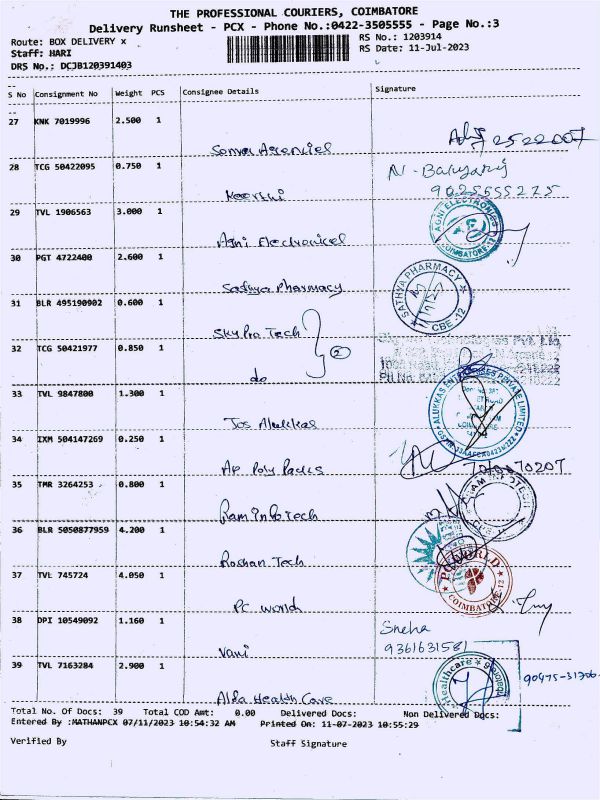 THE PROFESSIONAL COURIERS, COIMBATORE
Delivery Runsheet - PCX - Phone No.:0422-3505555 - Page No.:3
Route: BOX DELIVERY x
RS No.: 1203914
Staff: HARI
RS Date: 11-Jul-2023
DRS No.: DCJB120391403
S No Consignment No Weight PCS Consignee Details Signature
27 KNK 7019996 2.500 1
28 TCG 50422095 0.750 1
N. Balyarij
9025555225
29 TVL 1906563 3.000 1
Agni Electronicel
AGNI ELECTRONICS
COIMBATORE-12
30 PGT 4722400 2.600 1
Sathya Pharmacy
SATHYA PHARMACY
CBE-12
31 BLR 495190902 0.600 1
Sky Pro Tech
2
32 TCG 50421977 0.850 1
do
33 TVL 9847800 1.300 1
Jos Alukkas
34 IXM 504147269 0.250 1
AP Poly Packs
35 TMR 3264253 0.800 1
Ram Info Tech
36 BLR 5050877959 4.200 1
Roshan Tech
37 TVL 745724 4.050 1
PC world
PC WORLD
COIMBATORE-12
38 DPI 10549092 1.160 1
Vani
Sneha
9361631581
39 TVL 7163284 2.900 1
Alfa Health Care
Healthcare
Total No. Of Docs: 39 Total COD Amt: 0.00 Delivered Docs: Non Delivered Docs:
Entered By :MATHANPCX 07/11/2023 10:54:32 AM Printed On: 11-07-2023 10:55:29
Verified By Staff Signature